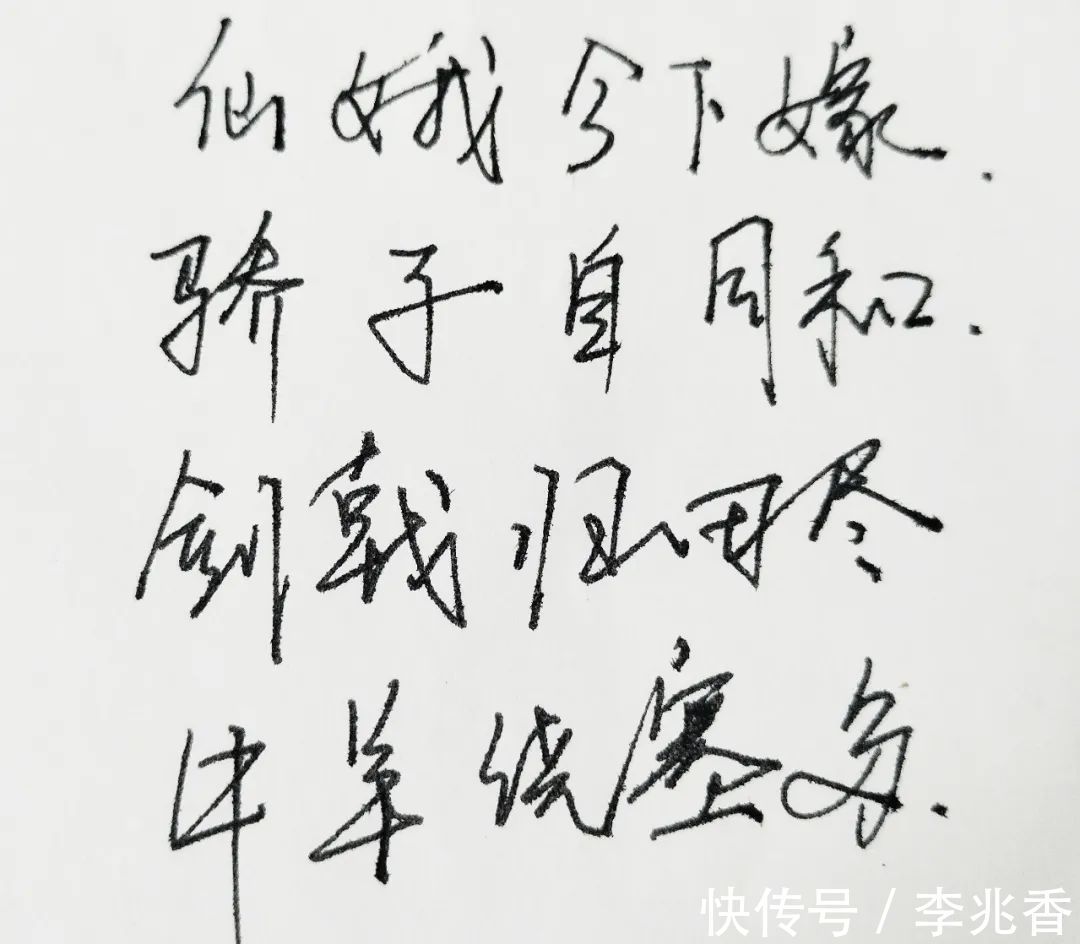 仙娥今下嫁.
骄子自同和.
剑戟归田尽
牛羊绕塞多.
快传号 / 李兆香